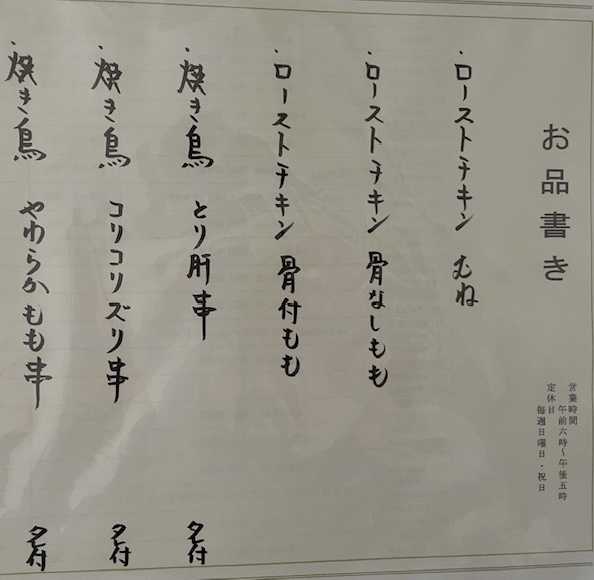 お品書き
営業時間
午前六時~午後五時
定休日
毎週日曜日・祝日
・ローストチキン むね
・ローストチキン 骨なしもも
・ローストチキン 骨付もも
・焼き鳥 とり肝串 タレ付
・焼き鳥 コリコリズリ串 タレ付
・焼き鳥 やわらかもも串 タレ付